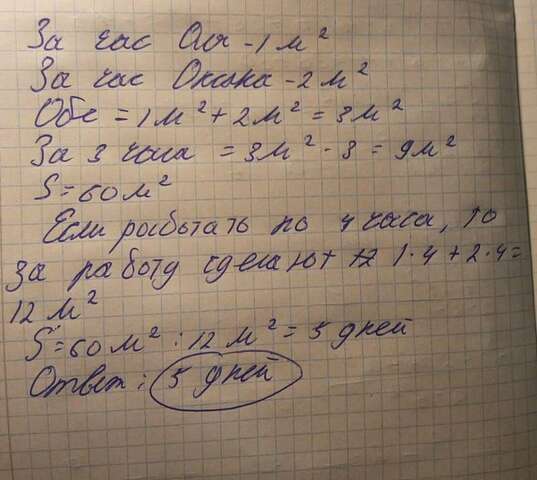 За час Оля - 1 м²
За час Оксана - 2 м²
Обе = 1 м² + 2 м² = 3 м²
За 3 часа = 3 м² · 3 = 9 м²
S = 60 м²
Если работать по 4 часа, то
за работу сделают 1·4 + 2·4 =
12 м²
S = 60 м² : 12 м² = 5 дней
Ответ: 5 дней